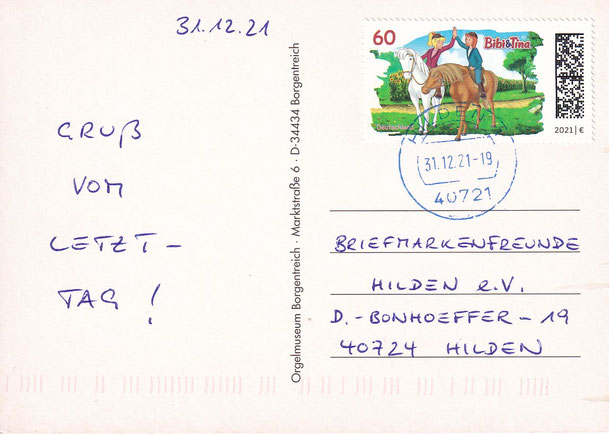 31.12.21
GRUß
VOM
LETZT-
TAG!
Orgelmuseum Borgentreich · Marktstraße 6 · D-34434 Borgentreich
60
Bibi&Tina
Deutschland
2021 | €
31.12.21-19
40721
BRIEFMARKENFREUNDE
HILDEN e.V.
D.-BONHOEFFER-19
40724 HILDEN